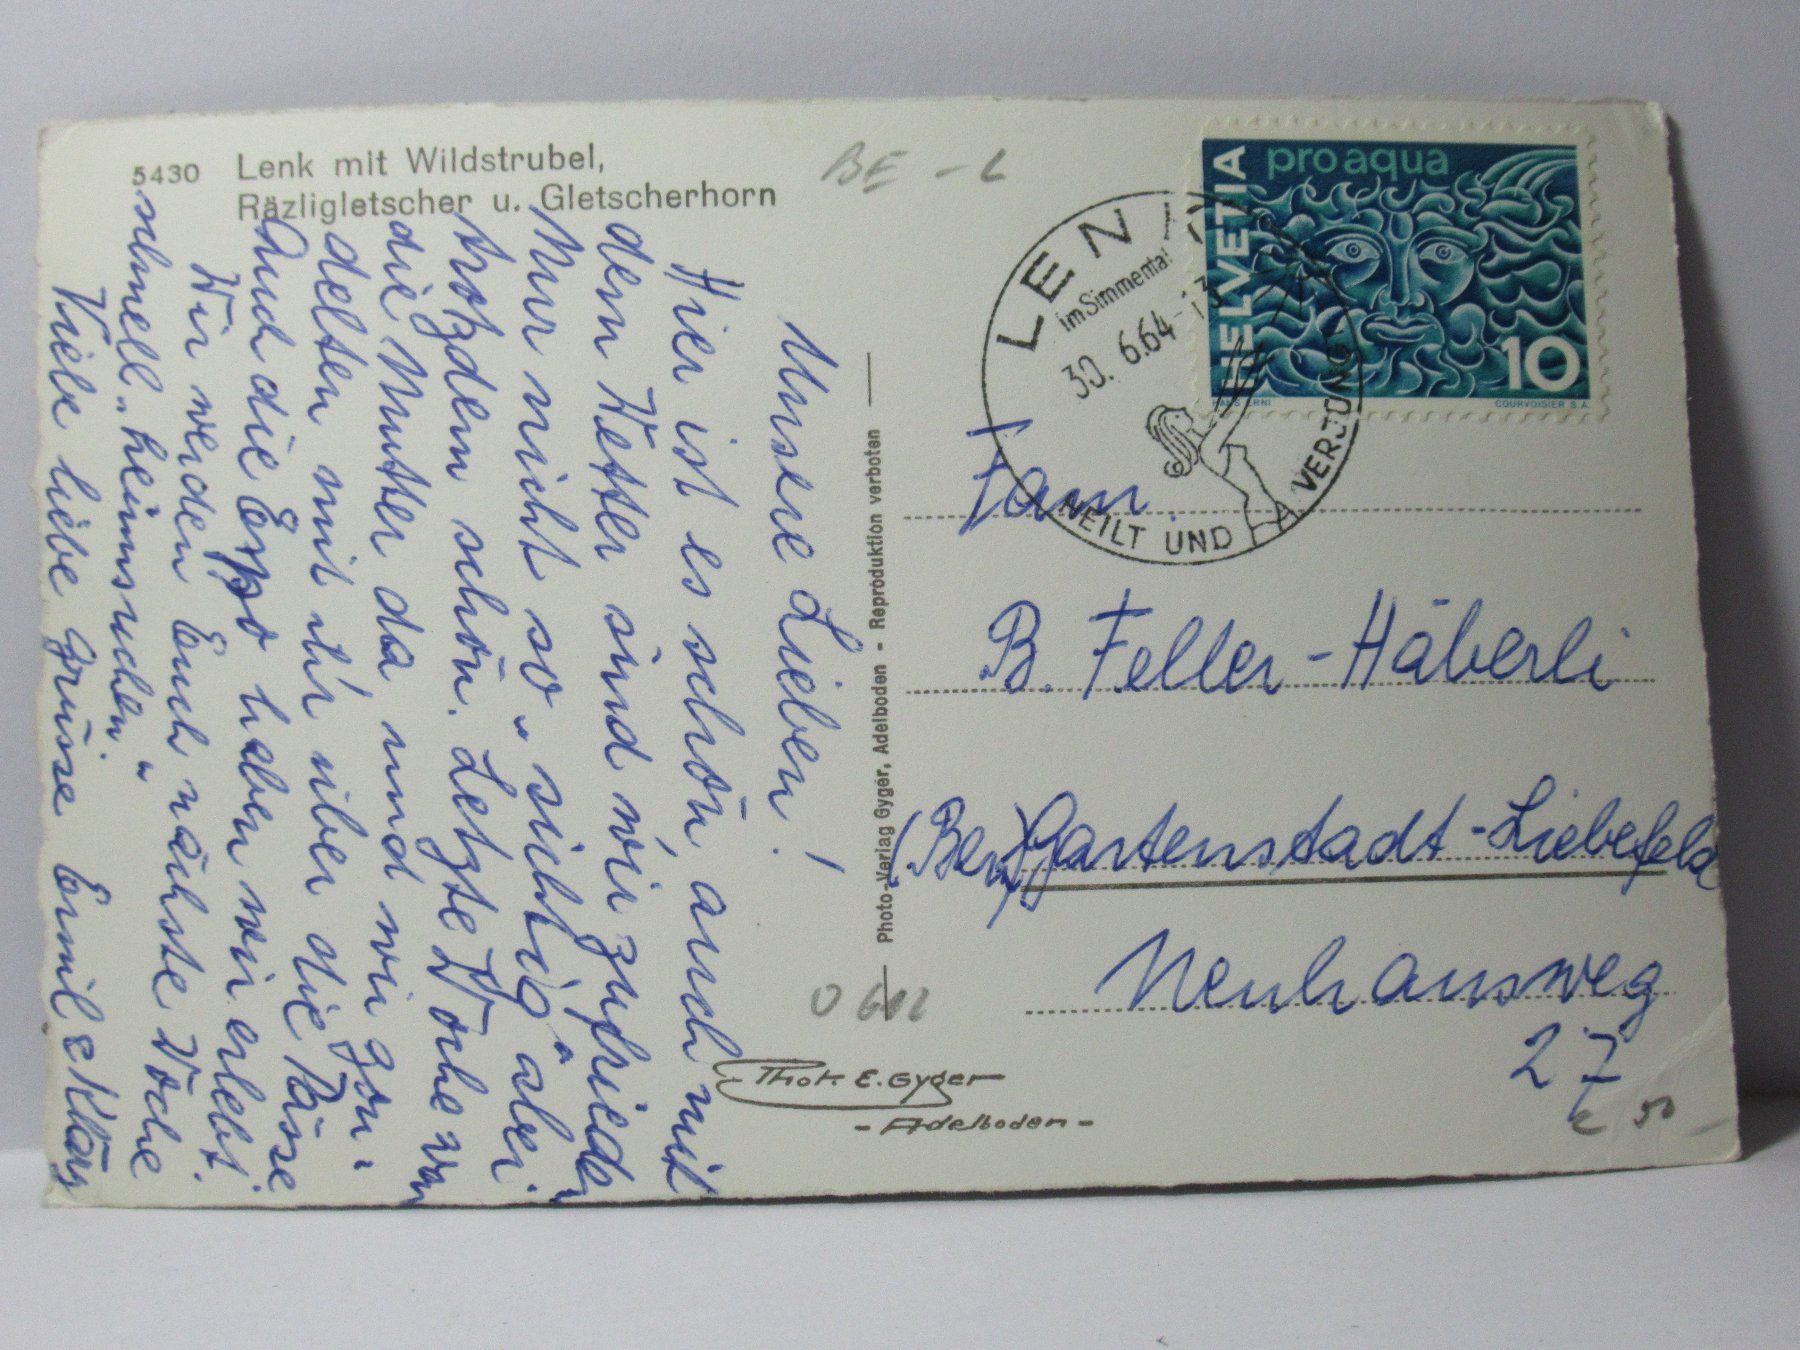 5430 Lenk mit Wildstrubel,
Räzligletscher u. Gletscherhorn
BE - L
Unsere Lieben!
Hier ist es schön, auch mit
dem Wetter sind wir zufrieden
Nur nicht so "sichtig" aber
trotzdem schön. Letzte Woche war
die Mutter da und wir gon-
delten mit ihr über die Pässe
Auch die Expo haben wir erlebt.
Wir werden Euch nächste Woche
schnell "heimsuchen"
Viele liebe Grüsse Emil &
Photo-Verlag Gyger, Adelboden - Reproduktion verboten
0612
Phot. E. Gyger
- Adelboden -
LENK
im Simmental
30. 6.64 - 13
HEILT UND VERJÜNGT
HELVETIA
pro aqua
10
HANS ERNI
COURVOISIER S.A.
Fam.
B. Feller-Häberli
(Bern) Gartenstadt-Liebefeld
Neuhausweg
27
50